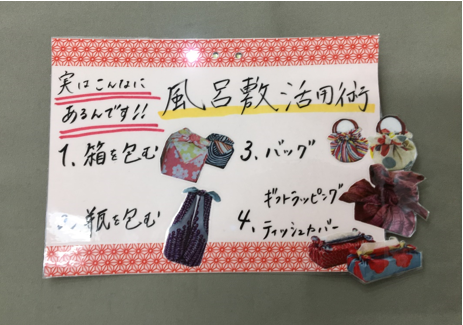 実はこんなに
あるんです!!
風呂敷活用術
1、箱を包む
3、バッグ
2、瓶を包む
ギフトラッピング
4、ティッシュカバー